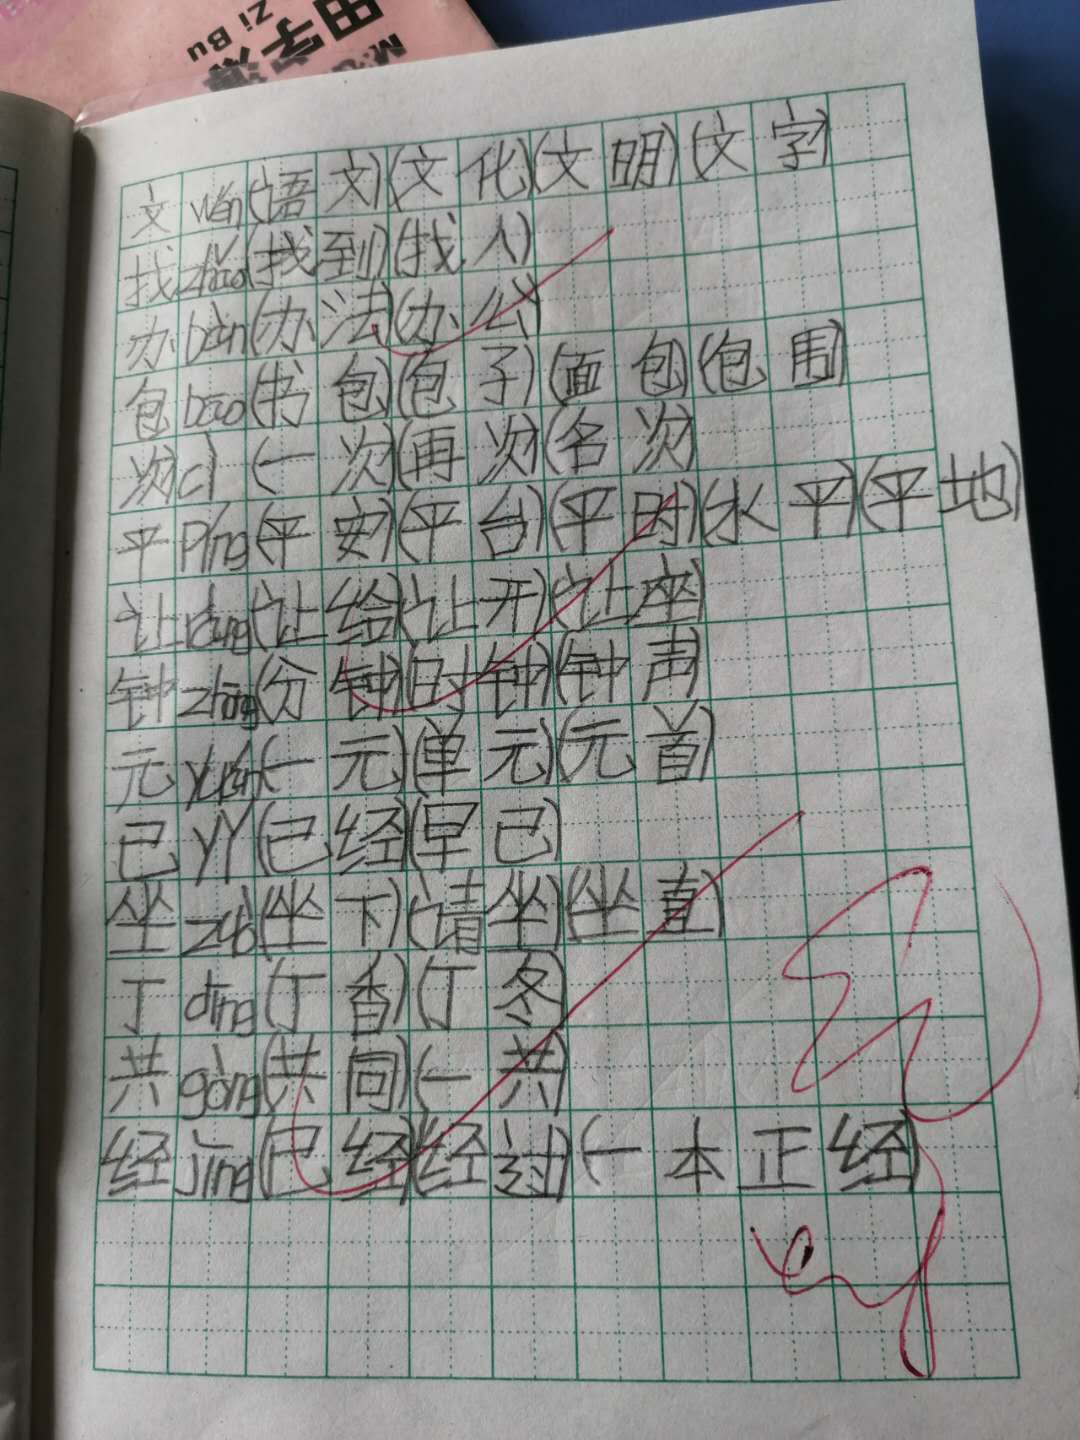 田字簿
Zi Bu
文 wén (语文) (文化) (文明) (文字)
找 zhǎo (找到) (找人)
办 bàn (办法) (办公)
包 bāo (书包) (包子) (面包) (包围)
次 cì (一次) (再次) (名次)
平 píng (平安) (平台) (平时) (水平) (平地)
让 ràng (让给) (让开) (让座)
钟 zhōng (分钟) (时钟) (钟声)
元 yuán (一元) (单元) (元首)
已 yǐ (已经) (早已)
坐 zuò (坐下) (请坐) (坐直)
丁 dīng (丁香) (丁冬)
共 gòng (共同) (一共)
经 jīng (已经) (经过) (一本正经)